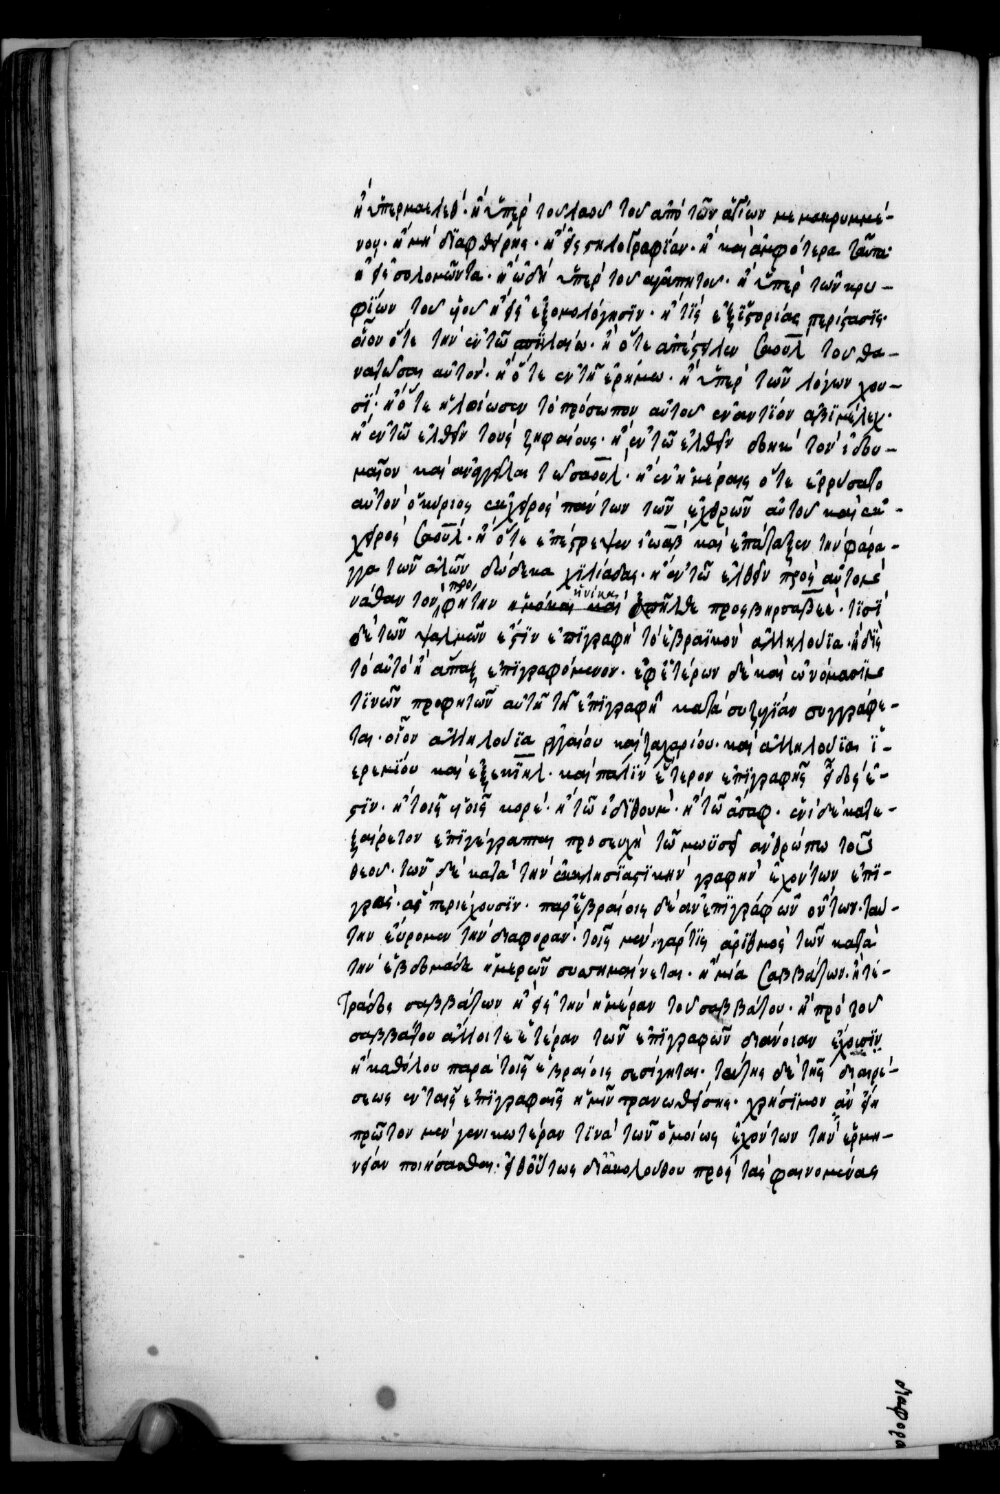 ἢ ὑπερμαελέθ· ἢ ὑπὲρ τοῦ λαοῦ τοῦ ἀπὸ τῶν ἁγίων μεμακρυμμέ-
νου· ἢ μὴ διαφθείρης· ἢ εἰς στηλογραφίαν· ἢ καὶ ἀμφότερα ταῦτα·
ἢ εἰς σολομῶντα· ἢ ὠδὴ ὑπὲρ τοῦ ἀγαπητοῦ· ἢ ὑπὲρ τῶν κρυ-
φίων τοῦ υἱοῦ ἢ εἰς ἐξομολόγησιν· ἢ τὶς ἐξ ἱστορίας περίστασις·
οἷον ὅτε τὴν ἐν τῶ σπηλαίω· ἢ ὅτε ἀπέστειλεν σαοὺλ τοῦ θα-
νατῶσαι αὐτόν· ἢ ὅτε ἐν τῆ ἐρήμω· ἢ ὑπὲρ τῶν λόγων χου-
σί· ἢ ὅτε ἠλοίωσεν τὸ πρόσωπον αὐτοῦ ἐναντίον ἀβιμέλεχ·
ἢ ἐν τῶ ἐλθεῖν τοὺς ζηφαίους· ἢ ἐν τῶ ἐλθεῖν δωὴκ τὸν ἰδου-
μαῖον καὶ ἀναγγεῖλαι τῶ σαοὺλ· ἢ ἐν ἡμέραις ὅτε ἐρρύσατο
αὐτὸν ὁ κύριος ἐκ χειρὸς πάντων τῶν ἐχθρῶν αὐτοῦ καὶ ἐκ
χειρὸς σαοὺλ· ἢ ὅτε ἐπέστρεψεν ἰωὰβ καὶ ἐπάταξεν τὴν φάρα-
γγα τῶν ἁλῶν δώδεκα χιλιάδας· ἢ ἐν τῶ ἐλθεῖν πρὸς αὐτὸν
νάθαν τὸν προφήτην ἡνίκα εἰσῆλθε πρὸς βηρσαβεέ· τισὶ
δὲ τῶν ψαλμῶν ἐστὶν ἐπιγραφὴ τὸ ἑβραϊκὸν ἀλληλούϊα· ἢ δὶς
τὸ αὐτὸ ἢ ἅπαξ ἐπιγραφόμενον· ἐφ' ἑτέρων δὲ καὶ ὠνόμασται
τινῶν προφητῶν αὐτῆ τῆ ἐπιγραφῆ κατὰ συζυγίαν συγγράφε-
ται· οἷον ἀλληλούϊα ἀγγαίου καὶ ζαχαρίου· καὶ ἀλληλούϊα ἱ-
ερεμίου καὶ ἐζεκιὴλ· καὶ πάλιν ἕτερον ἐπιγραφῆς εἶδος ἐ-
στιν· ἢ τοῖς υἱοῖς κορέ· ἢ τῶ ἰδιθοὺμ· ἢ τῶ ἀσάφ· ἑνὶ δὲ κατ' ἐ-
ξαίρετον ἐπιγέγραπται προσευχὴ τῶ μωϋσῆ ἀνθρώπω τοῦ
θεοῦ· τῶν δὲ κατὰ τὴν ἐκκλησιαστικὴν γραφὴν ἐχόντων ἐπι-
γραφὰς· ἃς περιέχουσιν· παρ' ἑβραίοις δὲ ἀνεπιγράφων ὄντων· ταύ-
την εὕρομεν τὴν διαφορὰν· τοῖς μὲν γὰρ τὶς ἀριθμὸς τῶν κατὰ
τὴν ἑβδομάδα ἡμερῶν συσημαίνεται· ἢ μία σαββάτων· ἢ τε-
τράδος σαββάτων ἢ εἰς τὴν ἡμέραν τοῦ σαββάτου· ἢ πρὸ τοῦ
σαββάτου ἄλλοι τε ἑτέραν τῶν ἐπιγραφῶν διάνοιαν ἔχουσιν
ἢ καθόλου παρὰ τοῖς ἑβραίοις σεσίγηται· ταύτης δὲ τῆς διαιρέ-
σεως ἐν ταῖς ἐπιγραφαῖς ἡμῖν τρανωθείσης· χρήσιμον ἂν εἴη
πρῶτον μὲν γενικωτέραν τινὰ τῶν ὁμοίως ἐχόντων τὴν ἑρμη-
νείαν ποιήσασθαι· εἶθ' οὕτως διακολούθου πρὸς τὰς φαινομένας
διαφορὰ